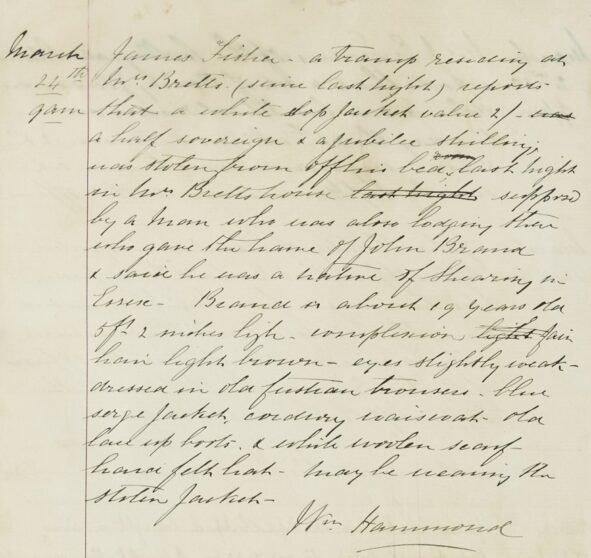 March James Fisher - a tramp residing at
24th Mrs Bretts. (since last night) reports
9am that a white slop Jacket value 2/- was
a half sovereign & a jubilee shilling,
was stolen from off his bed room last night
in Mrs Bretts house last night suppose
by a man who was also lodging there
who gave the name of John Brand
& said he was a native of Shearing in
Essex - Brand is about 19 years old
5ft 2 inches high. complexion light fair
hair light brown - eyes slightly weak -
dressed in old fustian trousers. blue
serge Jacket, corduroy waiscoat - old
lace up boots. & white woolen scarf -
hard felt hat - may be wearing the
stolen Jacket -
Wm Hammond